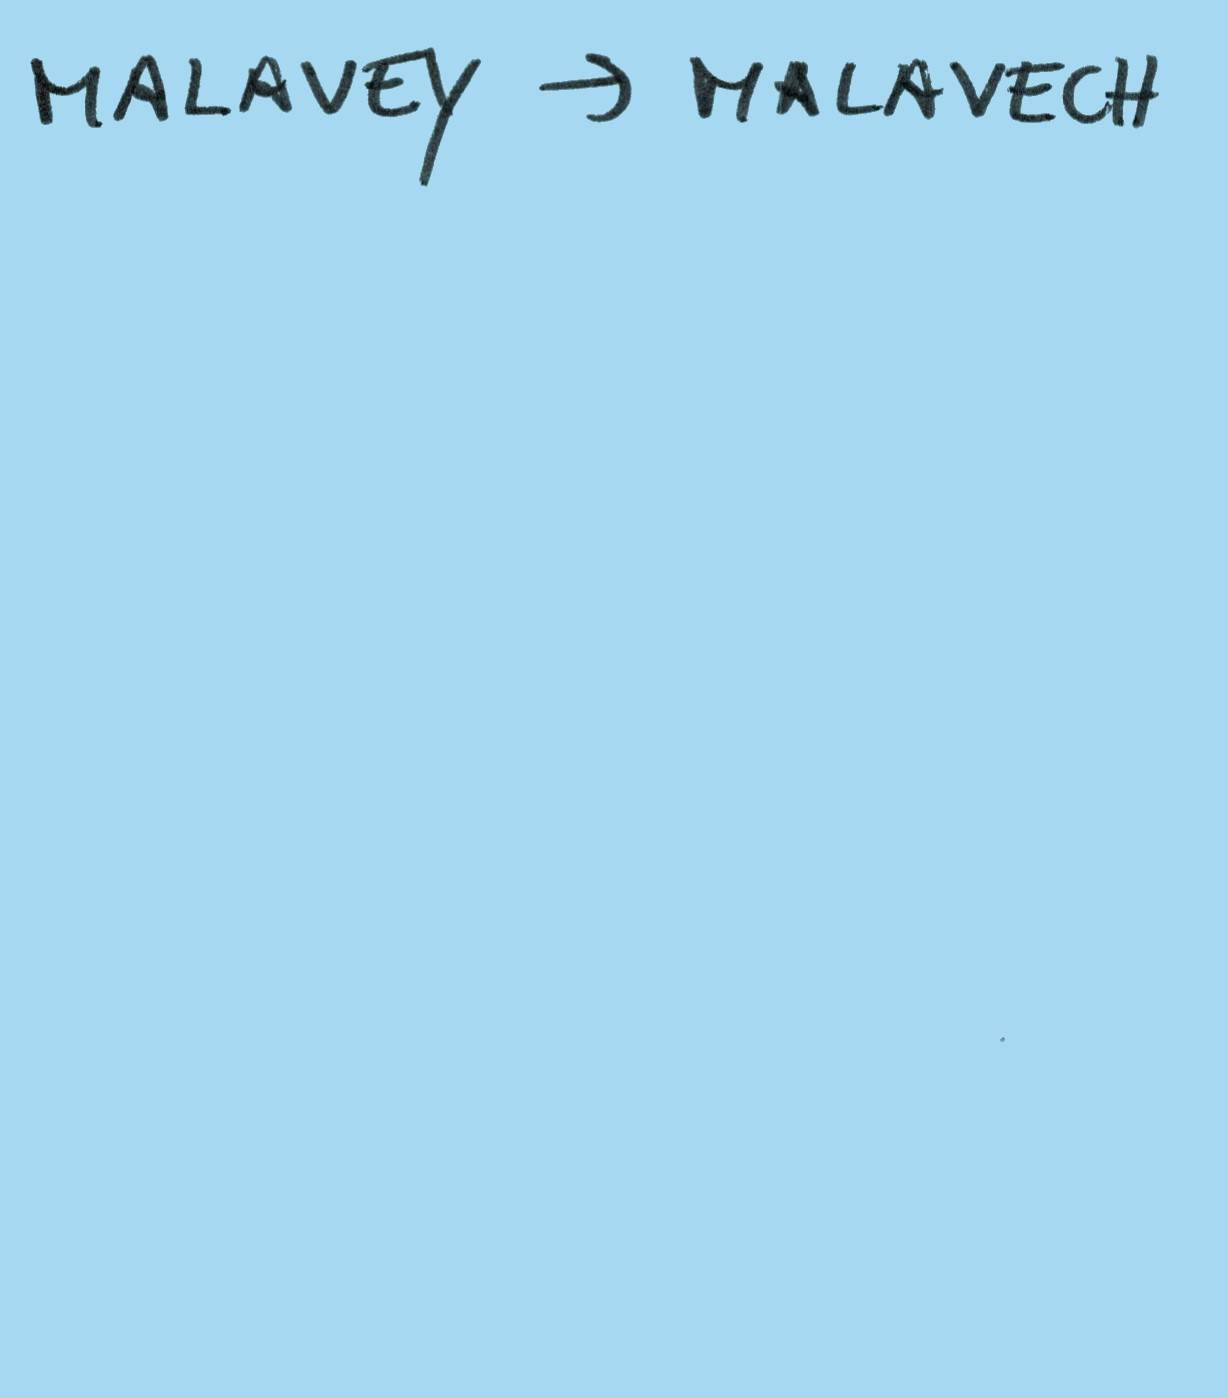 MALAVEY → MALAVECH